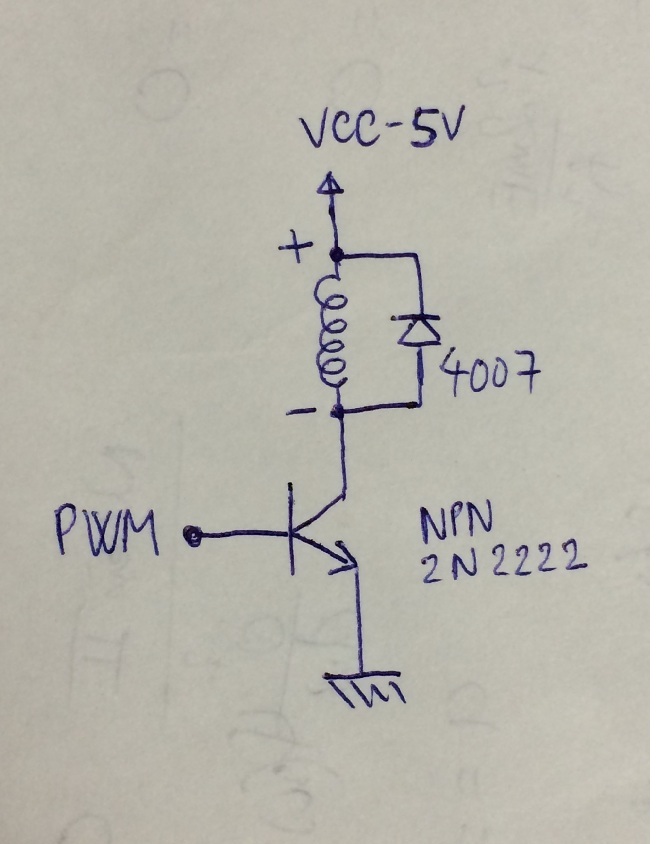 VCC-5V
+
4007
-
PWM
NPN
2N2222